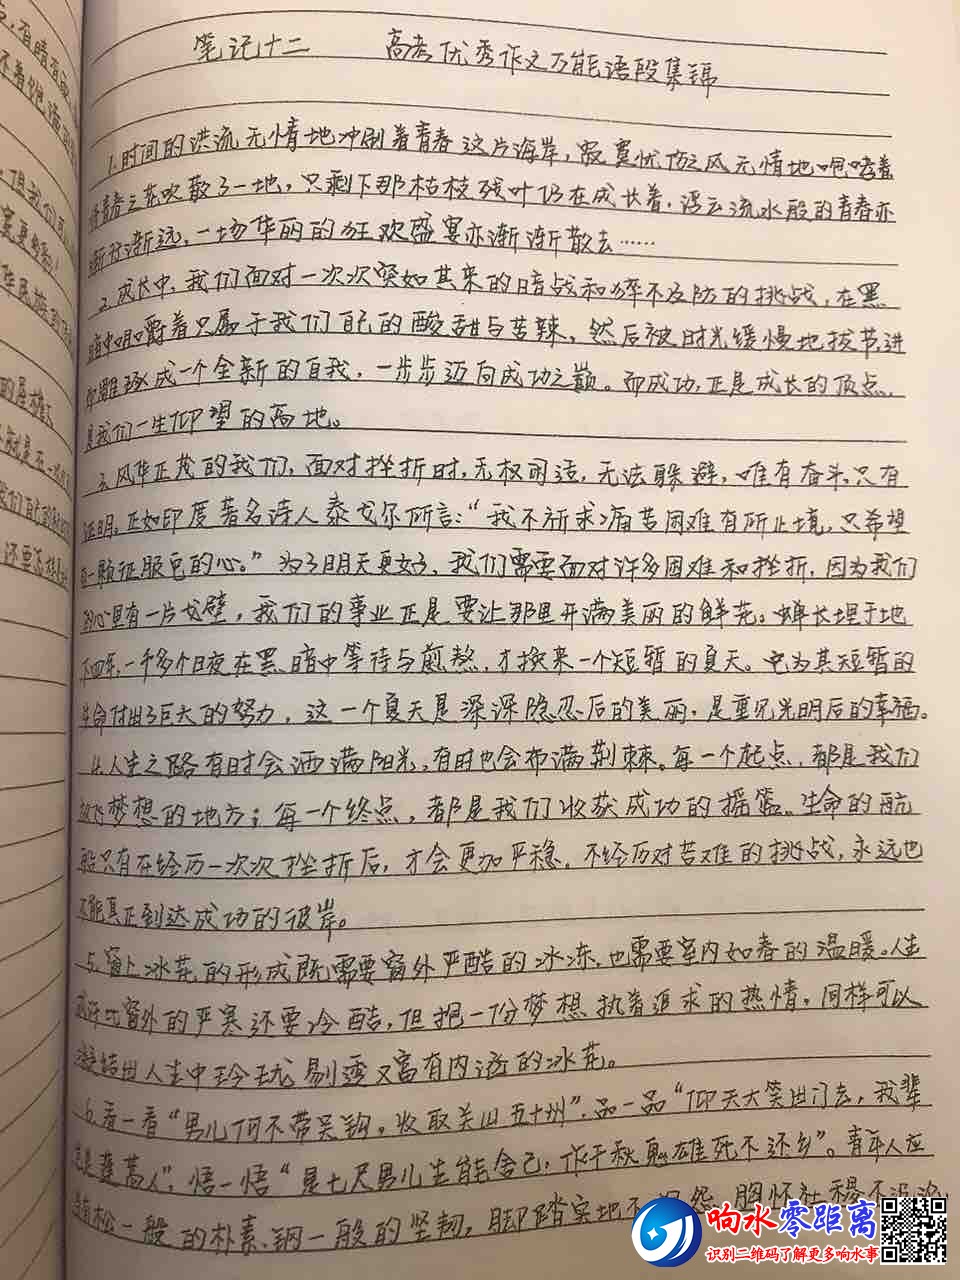 笔记十二 高考优秀作文万能语段集锦
1.时间的洪流无情地冲刷着青春这片海岸，寂寞忧伤之风无情地咆哮着
将青春之花吹散了一地，只剩下那枯枝残叶仍在成长着，浮云流水般的青春亦
渐行渐远，一场华丽的狂欢盛宴亦渐渐散去……
2.成长中，我们面对一次次突如其来的暗战和猝不及防的挑战，在黑
暗中咀嚼着只属于我们自己的酸甜与苦辣，然后被时光缓慢地拔节进
即雕琢成一个全新的自我，一步步迈向成功之巅。而成功，正是成长的顶点，
是我们一生仰望的高地。
3.风华正茂的我们，面对挫折时，无权闲适，无法躲避，唯有奋斗，只有
证明。正如印度著名诗人泰戈尔所言：“我不祈求痛苦困难有所止境，只希望
有一颗征服它的心。”为了明天更好，我们需要面对许多困难和挫折，因为我们
的心里有一片戈壁，我们的事业正是要让那里开满美丽的鲜花。蝉长埋于地
下四年，一千多个日夜在黑暗中等待与煎熬，才换来一个短暂的夏天。它为其短暂的
生命付出了巨大的努力，这一个夏天是深深隐忍后的美丽，是重见光明后的幸福。
4.人生之路有时会洒满阳光，有时也会布满荆棘。每一个起点，都是我们
放飞梦想的地方；每一个终点，都是我们收获成功的摇篮。生命的航
船只有在经历一次次挫折后，才会更加平稳，不经历对苦难的挑战，永远也
不能真正到达成功的彼岸。
5.窗上冰花的形成既需要窗外严酷的冰冻，也需要室内如春的温暖。人生
或许比窗外的严寒还要冷酷，但抱一份梦想执着追求的热情，同样可以
凝结出人生中玲珑剔透又富有内涵的冰花。
6.看一看“男儿何不带吴钩，收取关山五十州”，品一品“仰天大笑出门去，我辈
岂是蓬蒿人”，悟一悟“是七尺男儿生能舍己，作千秋鬼雄死不还乡”。青年人应
当有松一般的朴素、钢一般的坚韧，脚踏实地不 怨，胸怀社稷不
响水零距离
识别二维码了解更多响水事